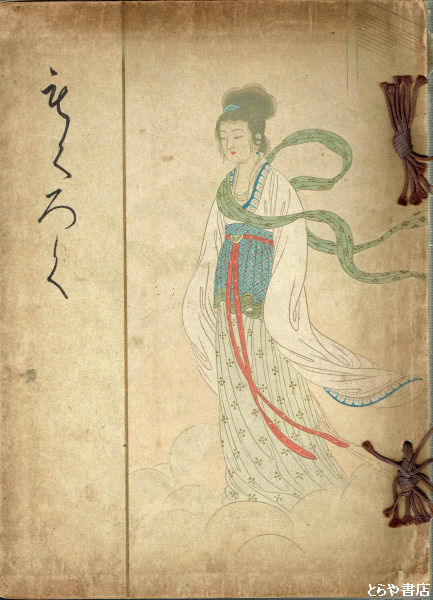 もくろく
とらや書店